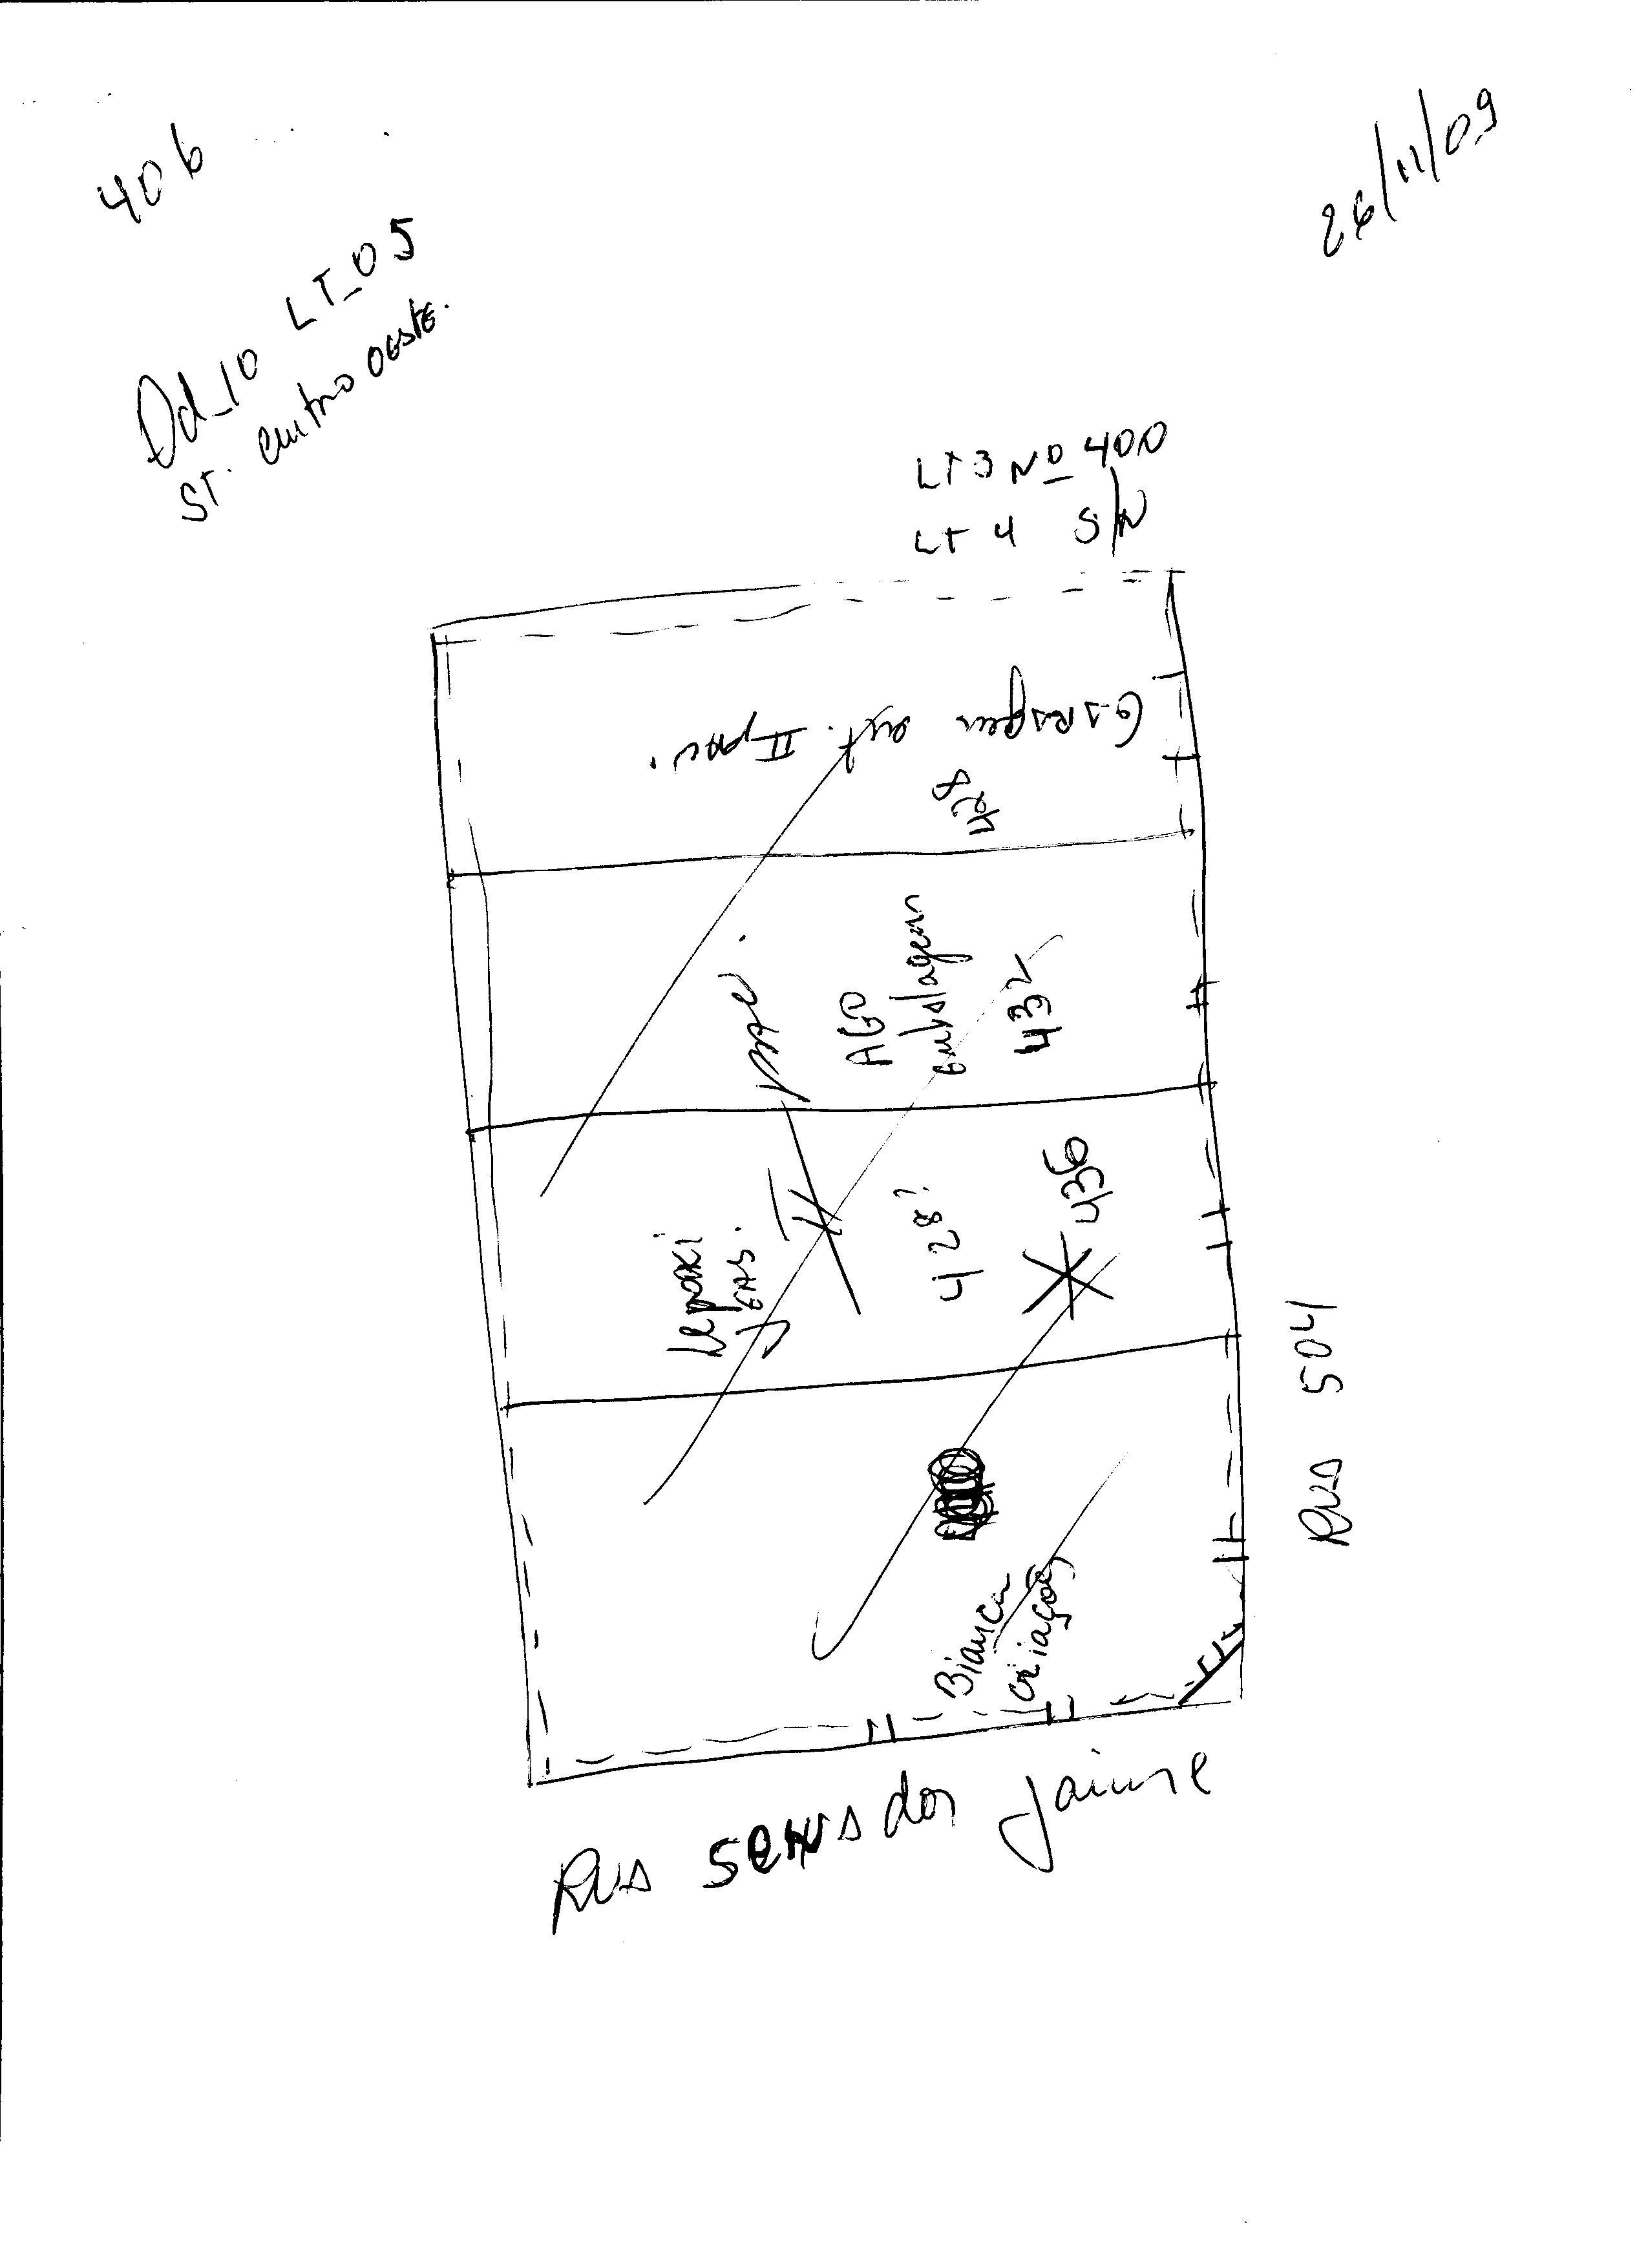 406
26/11/09
Qd_10 LT_05
ST. Centro Oeste.
LT 3 Nº 400
LT 4 S/N
Garagem
II pav.
428
AGO
embalagem
432
pav.
II
436
428?
Jeans.
Bianca
criações
Rua 504
Rua Senador Jaime